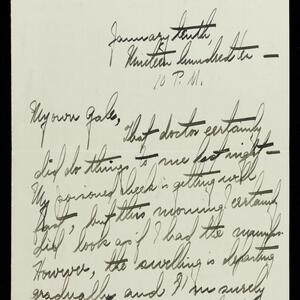 January tenth,
Nineteen hundred ten —
10 P.M.
My own Gale,
That doctor certainly
did do things to me last night —
My poisoned cheek is getting well
fast, but this morning I certainly
did look as if I had the mumps.
However, the swelling is departing
gradually and I'm surely